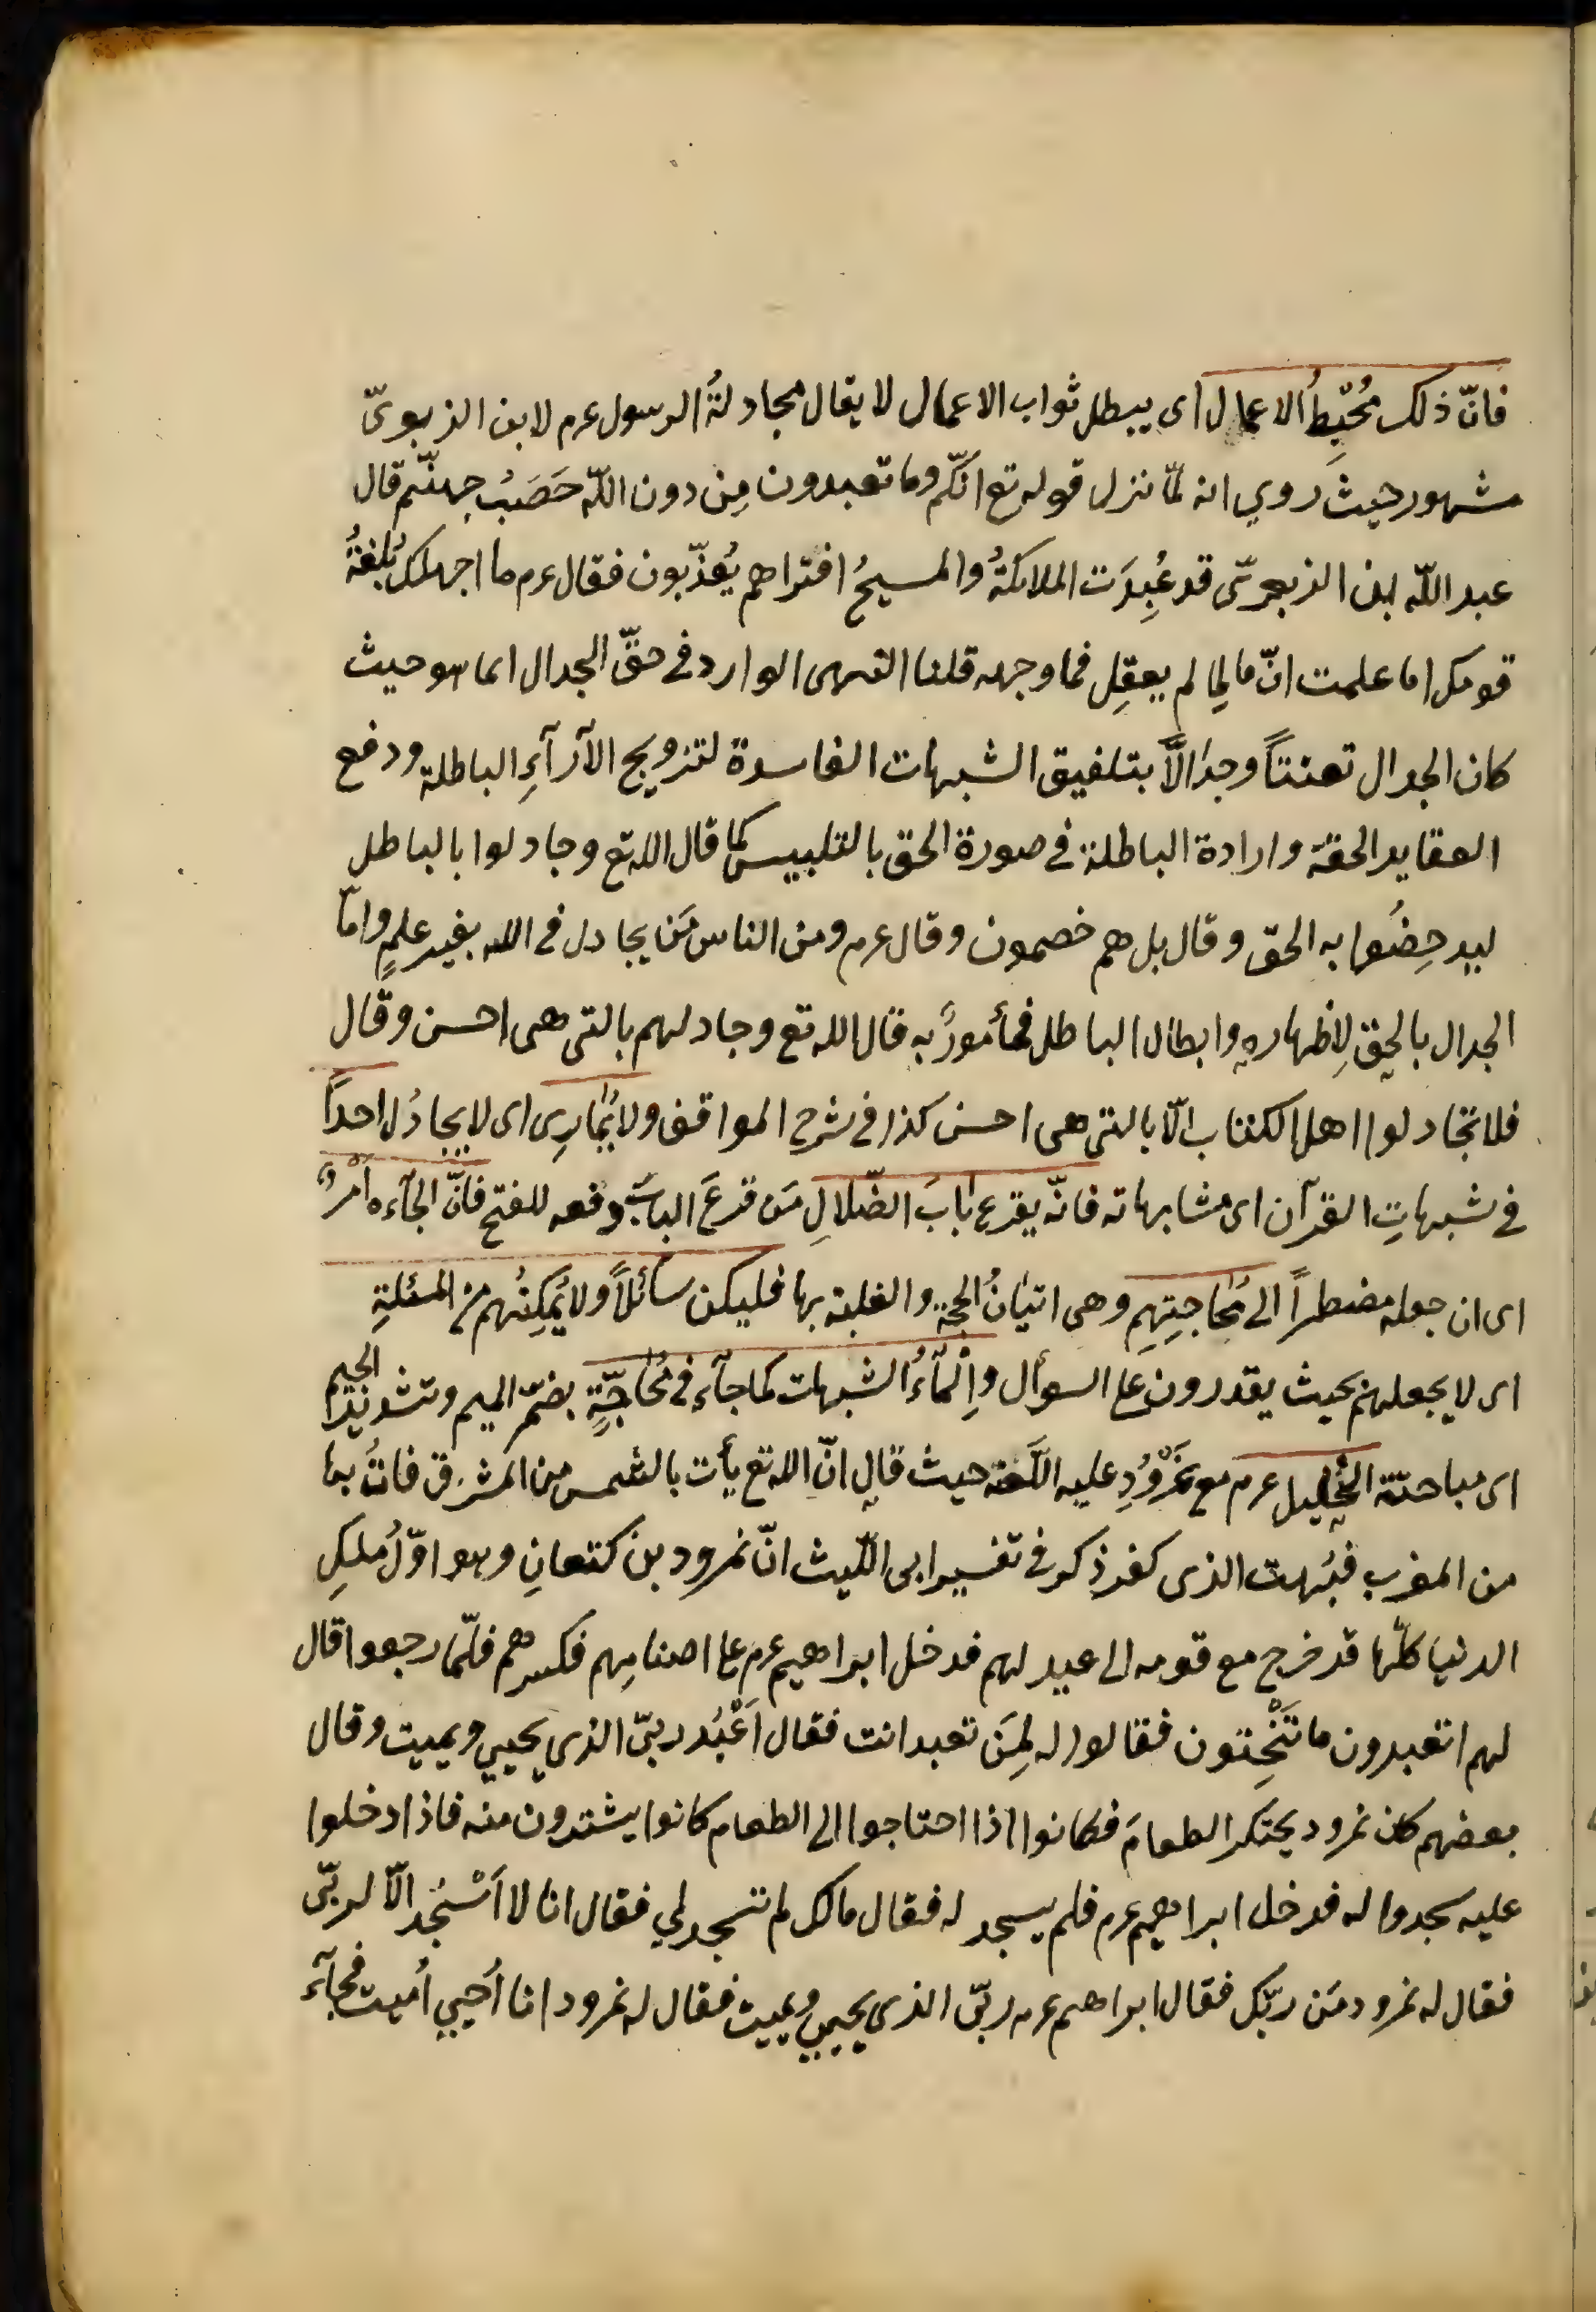 فانّ ذلك مُحبِطُ الاعمال اى يبطل ثواب الاعمال لا يقال مجادلةُ الرسول عرم لابن الزبعرىّ
مشهور حيث روي انه لمّا نزل قوله تع انكم وما تعبدون مِن دون اللّه حَصَبُ جهنّم قال
عبد اللّه ابن الزبعرىّ قد عُبِدَت الملائكةُ والمسيحُ افتراهم يُعذّبون فقال عرم ما اجهلك بلغةُ
قومك اما علمت انّ ما لِما لم يعقِل فما وجهه قلنا النهى الوارد فى حقّ الجدال انما هو حيث
كان الجدال تعنتاً وجِدَالاً بتلفيق الشبهات الفاسدة لترويج الآرآءِ الباطلة ودفع
العقايد الحقة وارادة الباطلة فى صورة الحق بالتلبيس كما قال الله تع وجادلوا بالباطل
ليدحِضُوا به الحقّ وقال بل هم خصمون وقال عرم ومن الناس مَن يجادل فى الله بغير علمٍ وامّا
الجدال بالحقّ لِاظهاره وابطال الباطل فمأمورٌ به قال الله تع وجادلهم بالتى هى احسن وقال
فلا تجادلوا اهل الكتاب الّا بالتى هى احسن كذا فى شرح المواقف ولا يُمارِى اى لا يجادُل احداً
فى شبهاتِ القرآن اى متشابهاته فانّه يقرع بَابَ الضّلالِ مَن قرعَ البابَ دفعه للفتح فانّ الجآءه أمْرٌ
اى ان جعله مضطراً الى مُحاجتِهِم وهى اتيَانُ الحجة والغلبة بها فليكن سآئلاً ولا يُمَكِنُهم من المسئلةِ
اى لا يجعلهم بحيث يقدرون على السوأل وإلْقآءُ الشبهات كما جآء فى مُحاجّةِ بضمّ الميم وتشديد الجيم
اى مباحثة الخليل عرم مع نَمْرُودِ عليه اللّعنة حيث قال انّ الله تع يأت بالشمس من المشرق فاتُ بها
من المغرب فبُهت الذى كفر ذكر فى تفسير ابى اللّيث انّ نمرود بن كنعانِ وهو اوّلُ مُلْكِ
الدنيا كلّها قد خرج مع قومه الى عيد لهم فدخل ابراهيم عرم على اصنامِهم فكسرهم فلمّا رجعوا قال
لهم اتعبدون ما تَنْحِتون فقالوا له لِمَن تعبد انت فقال اَعْبُد ربىّ الذى يحيي ويميت وقال
بعضهم كان نمرود يحتكر الطعامَ فكانوا اذا احتاجوا الى الطعام كانوا يشترون منه فاذا دخلوا
عليه سجدوا له فدخل ابراهيم عرم فلم يسجد له فقال مالك لم تسجد لي فقال انا لا اَسْجُد الّا لربّى
فقال له نمرود مَن ربّك فقال ابراهيم عرم ربّى الذى يحيي ويميت فقال له نمرود انا اُحيي اُميت فجآء